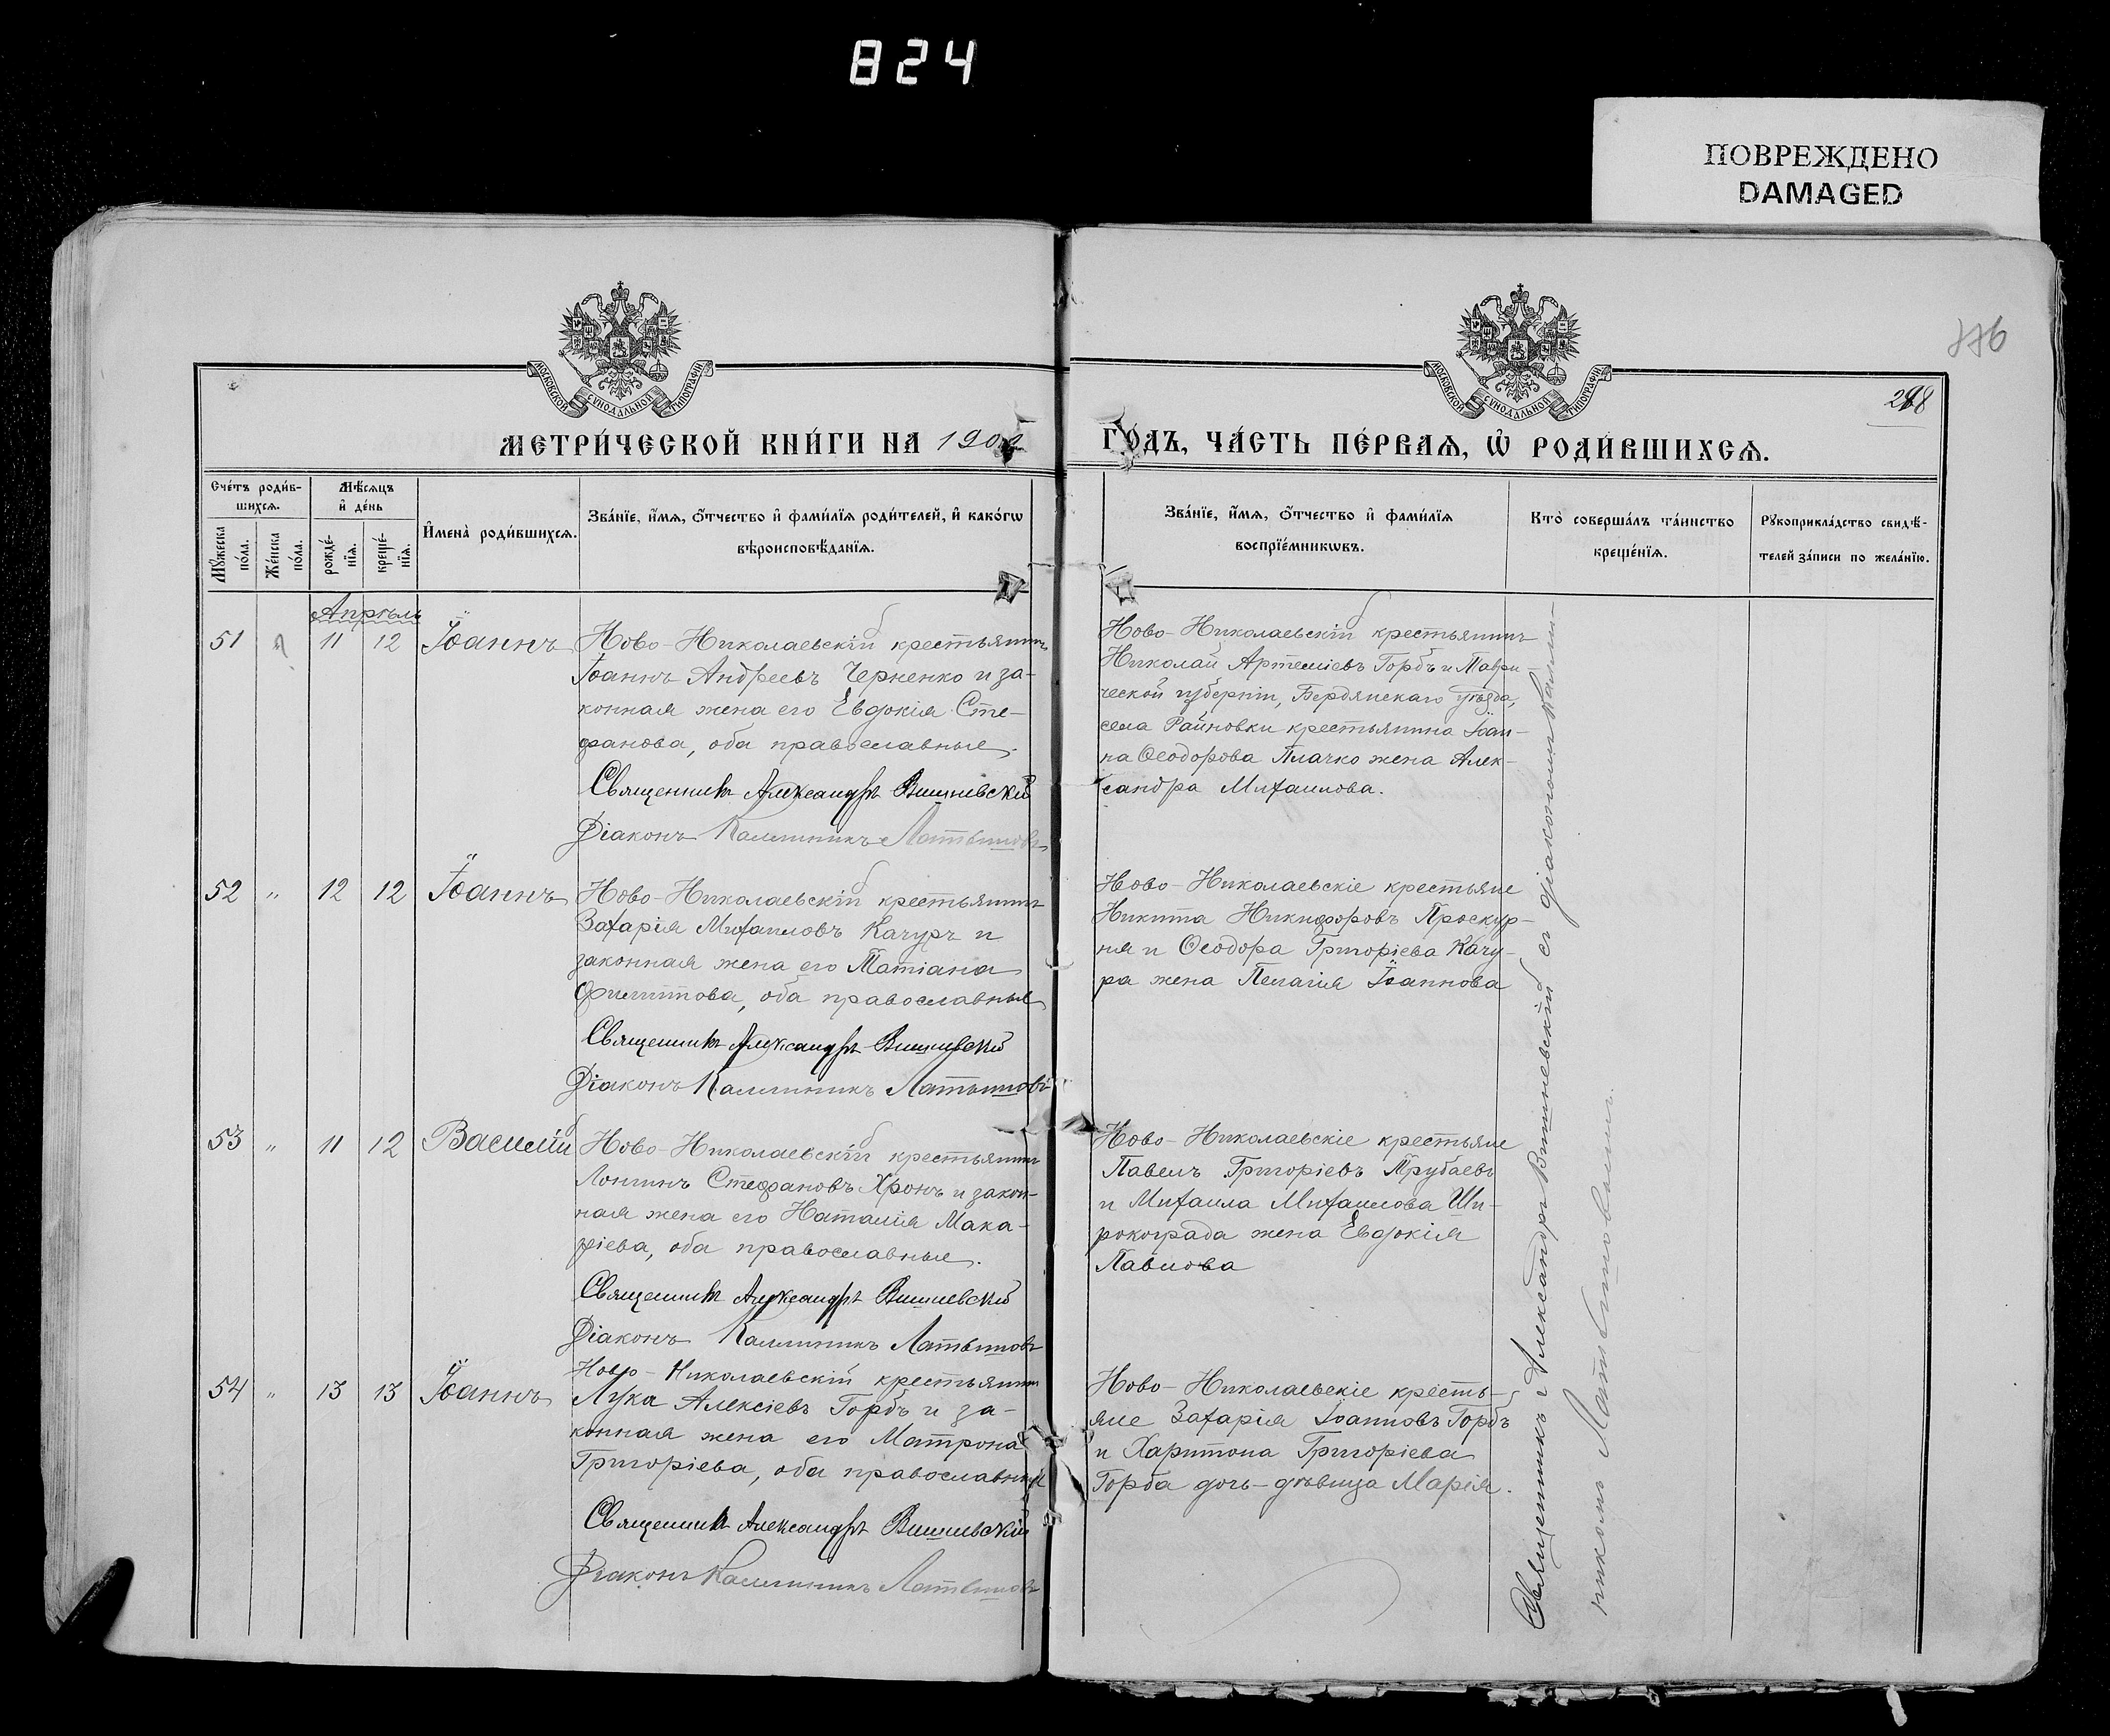 824
ПОВРЕЖДЕНО
DAMAGED
МОСКОВСКОЙ СУНОДАЛЬНОЙ ТИПОГРАФІИ
МОСКОВСКОЙ СУНОДАЛЬНОЙ ТИПОГРАФІИ
МЕТРИ́ЧЕСКОЙ КНИ́ГИ НА 1902
ГО́ДЪ, ЧА́СТЬ ПЕ́РВАѦ, Ѡ҆ РОДИ́ВШИХСѦ.
Сче́тъ роди́в-
шихсѧ.
Мѣ́сѧцъ
и҆ де́нь
Мꙋ́жеска
по́ла.
Же́нска
по́ла.
рожде́-
нїѧ.
креще́-
нїѧ.
И҆мена̀ роди́вшихсѧ.
Зва́нїе, и҆́мѧ, ѻ҆́тчество и҆ фами́лїѧ роди́телей, и҆ како́гѡ
вѣроисповѣ́данїѧ.
Зва́нїе, и҆́мѧ, ѻ҆́тчество и҆ фами́лїѧ
воспрїе́мникѡвъ.
Кто̀ соверша́лъ та́инство
креще́нїѧ.
Рꙋкоприкла́дство свидѣ́-
телей за́писи по жела́нїю.
Апрѣль
51 11 12 Іоаннъ
Ново-Николаевскій крестьянинъ
Іоаннъ Андреевъ Черненко и за-
конная жена его Евдокія Сте-
фанова, оба православные.
Священникъ Александръ Вишневскій
Діаконъ Каллиникъ Латышовъ
Ново-Николаевскій крестьянинъ
Николай Артеміевъ Горбъ и Таври-
ческой губерніи, Бердянскаго уѣзда,
села Райновки крестьянина Іоан-
на Ѳеодорова Плачко жена Алек-
сандра Михаилова.
52 " 12 12 Іоаннъ
Ново-Николаевскій крестьянинъ
Захарія Михаиловъ Качуръ и
законная жена его Татіана
Филиппова, оба православные
Священникъ Александръ Вишневскій
Діаконъ Каллиникъ Латышовъ
Ново-Николаевскіе крестьяне
Никита Никифоровъ Проскур-
ня и Ѳеодора Григоріева Качу-
ра жена Пелагія Іоаннова
53 " 11 12 Василій
Ново-Николаевскій крестьянинъ
Лонгинъ Стефановъ Хронъ и закон-
ная жена его Наталія Мака-
ріева, оба православные.
Священникъ Александръ Вишневскій
Діаконъ Каллиникъ Латышовъ
Ново-Николаевскіе крестьяне
Павелъ Григоріевъ Трубаевъ
и Михаила Михаилова Ши-
рокограда жена Евдокія
Павлова
54 " 13 13 Іоаннъ
Ново-Николаевскій крестьянинъ
Лука Алексіевъ Горбъ и за-
конная жена его Матрона
Григоріева, оба православные
Священникъ Александръ Вишневскій
Діаконъ Каллиникъ Латышовъ
Ново-Николаевскіе кресть-
яне Захарія Іоанновъ Горбъ
и Харитона Григоріева
Горба дочь-дѣвица Марія.
Священникъ Александръ Вишневскій съ діакономъ Калли-
никомъ Латышовымъ.